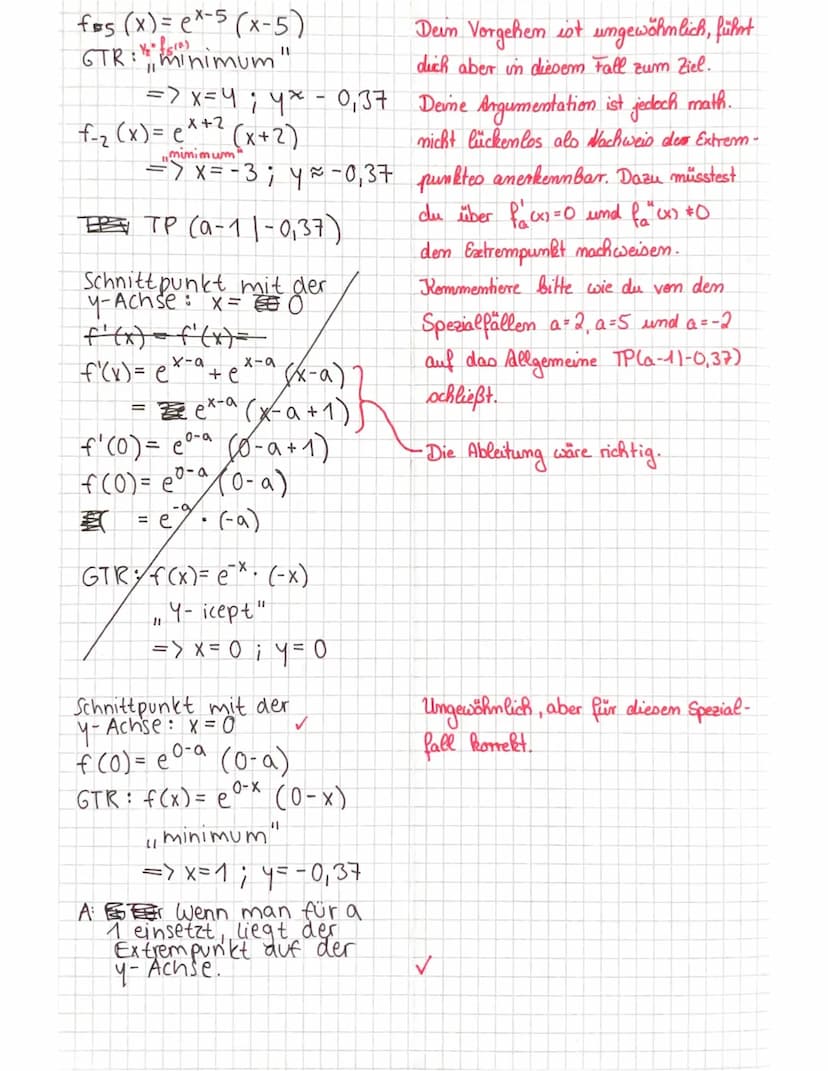 f₅ (x) = e^(x-5) (x-5)
GTR: Y₂ = f₅(x) „minimum"
=> x=4 ; y≈ - 0,37
f₋₂ (x) = e^(x+2) (x+2)
„minimum"
=> x = -3 ; y ≈ -0,37
TP (a-1 | -0,37)
Schnittpunkt mit der
y-Achse: x = 0
f'(x) = f'(x) =
f'(x) = e^(x-a) + e^(x-a) (x-a)
= e^(x-a) (x-a+1)
f'(0) = e^(0-a) (0-a+1)
f(0) = e^(0-a) (0-a)
= e^(-a) · (-a)
GTR: f(x) = e^(-x) · (-x)
„Y-icept"
=> x = 0 ; y = 0
Schnittpunkt mit der
y-Achse: x = 0 ✓
f(0) = e^(0-a) (0-a)
GTR: f(x) = e^(0-x) (0-x)
„minimum"
=> x=1 ; y=-0,37
A: Wenn man für a
1 einsetzt, liegt der
Extrempunkt auf der
y-Achse. ✓
Dein Vorgehen ist ungewöhnlich, führt
dich aber in diesem Fall zum Ziel.
Deine Argumentation ist jedoch math.
nicht lückenlos als Nachweis des Extrem-
punktes anerkennbar. Dazu müsstest
du über fₐ'(x)=0 und fₐ''(x)≠0
den Extrempunkt nachweisen.
Kommentiere bitte wie du von den
Spezialfällen a=2, a=5 und a=-2
auf das Allgemeine TP(a-1|-0,37)
schließt.
Die Ableitung wäre richtig.
Ungewöhnlich, aber für diesen Spezial-
fall korrekt.